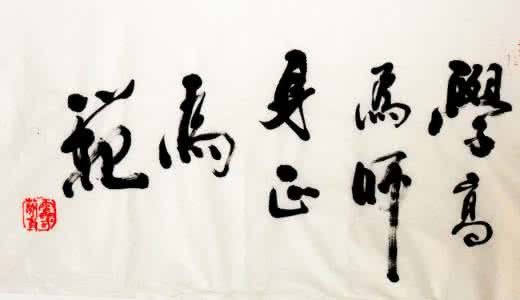 學高
為師
身正
為
範